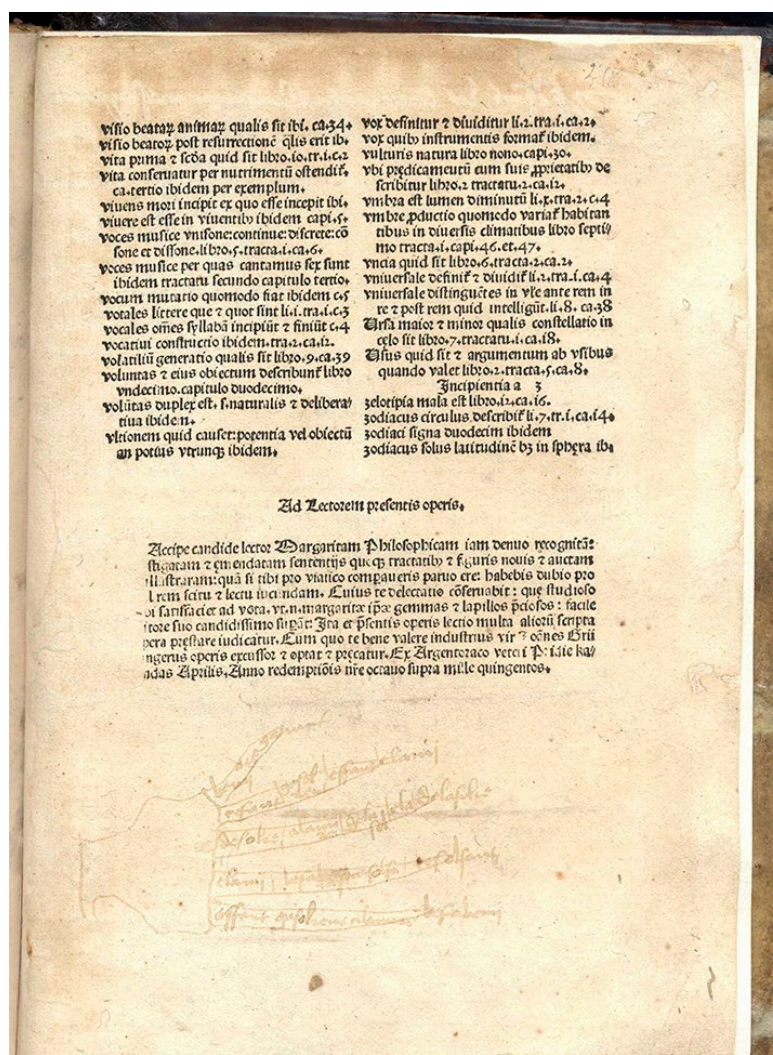 visio beataꝝ animaꝝ qualis sit ibi. ca.34.
visio beatoꝝ post resurrectionē q̄lis erit ib.
vita prima ⁊ scd̄a quid sit libro.io.tr.i.c.2
vita conseruatur per nutrimentū ostendit̄.
ca.tertio ibidem per exemplum.
viuens mori incipit ex quo esse incepit ibi.
viuere est esse in viuentib⁹ ibidem capi.5.
voces musice vnisone:continue:discrete:cō
sone et dissone.libro.5.tracta.i.ca.6.
voces musice per quas cantamus sex sunt
ibidem tractatu secundo capitulo tertio.
vocum mutatio quomodo fiat ibidem c.5
votales littere que ⁊ quot sint li.i.tra.i.c.3
vocales om̄es syllabā incipiūt ⁊ finiūt c.4
vocatiui constructio ibidem.tra.2.ca.i2.
volatiliū generatio qualis sit libro.9.ca.39
voluntas ⁊ eius obiectum describunt̄ libro
vndecimo.capitulo duodecimo.
volūtas duplex est. s.naturalis ⁊ delibera/
tiua ibidem.
vltionem quid causet:potentia vel obiectū
an potius vtrunque ibidem.
vox definitur ⁊ diuiditur li.2.tra.i.ca.2.
vox quib⁹ instrumentis format̄ ibidem.
vulturis natura libro nono.capi.30.
vbi predicamentū cum suis ꝓprietatib⁹ de
scribitur libro.2 tractatu.2.ca.i2.
vmbra est lumen diminutū li.x.tra.2.c.4
vmbre ꝓductio quomodo variat̄ habitan
tibus in diuersis climatibus libro septi/
mo tracta.i.capi.46.et.47.
vncia quid sit libro.6.tracta.2.ca.2.
vniuersale definit̄ ⁊ diuidit̄ li.2.tra.i.ca.4
vniuersale distinguētes in vl̄e ante rem in
re ⁊ post rem quid intelligūt.li.8.ca.38
Ursa maior ⁊ minor qualis constellatio in
cęlo sit libro.7.tractatu.i.ca.i8.
Usus quid sit ⁊ argumentum ab vsibus
quando valet libro.2.tracta.5.ca.8.
Incipientia a z
zelotipia mala est libro.i2.ca.i6.
zodiacus circulus describit̄ li.7.tr.i.ca.i4.
zodiaci signa duodecim ibidem
zodiacus solus latitudinē hꝫ in sphęra ib.
Ad Lectorem presentis operis.
Accipe candide lector Margaritam Philosophicam iam denuo recognitā:
stigatam ⁊ ęmendatam sententijs queqꝫ tractatib⁹ ⁊ figuris nouis ⁊ auctam
illustraram:quā si tibi pro viatico comparaueris paruo ere: habebis dubio pro
l rem scitu ⁊ lectu iucundam. Cuius te delectatio cōseruabit : que studioso
satisfaciet ad vota. vt.n.margaritę ip̄ę gemmas ⁊ lapillos p̄ciosos : facile
itore suo candidissimo supāt: Ita et p̄sentis operis lectio multa alioꝝ scripta
pera pręstare iudicatur. Cum quo te bene valere industrius vir Ioānes Grü
ngerus operis excussor ⁊ optat ⁊ pręcatur. Ex Argentoraco veteri Pridie ka/
ndas Aprilis. Anno redemptiōis nr̄e octauo supra mille quingentos.